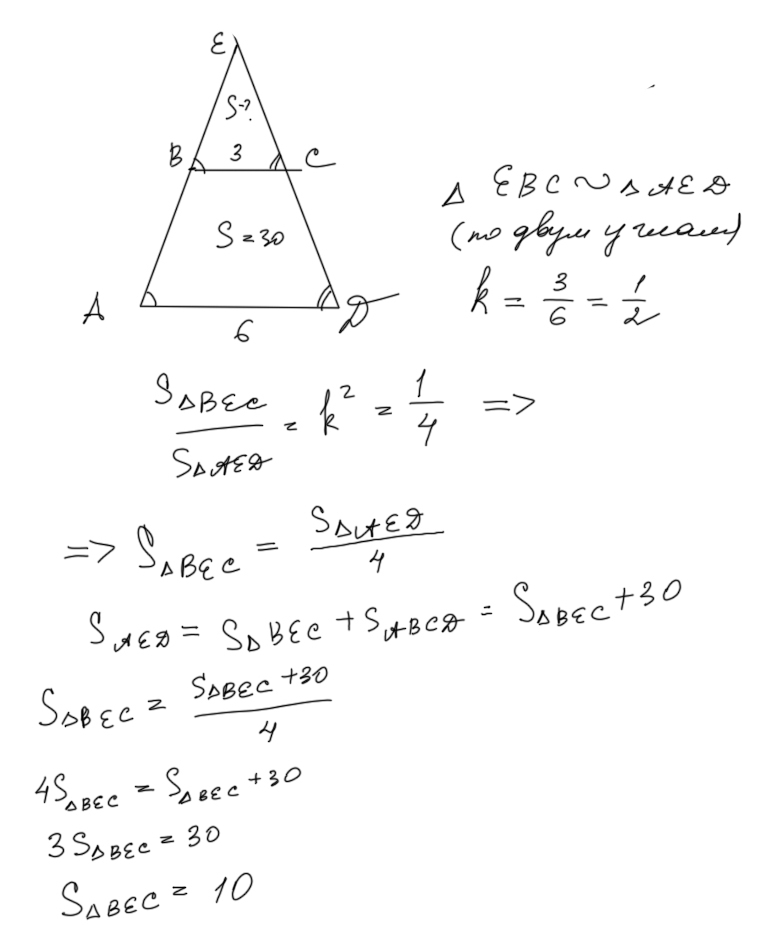 E
S-?
B 3 C
S = 30
A
6
D
Δ EBC ∾ Δ AED
(по двум углам)
k = 3/6 = 1/2
S_ΔBEC / S_ΔAED = k² = 1/4 =>
=> S_ΔBEC = S_ΔAED / 4
S_AED = S_ΔBEC + S_ABCD = S_ΔBEC + 30
S_ΔBEC = (S_ΔBEC + 30) / 4
4S_ΔBEC = S_ΔBEC + 30
3S_ΔBEC = 30
S_ΔBEC = 10